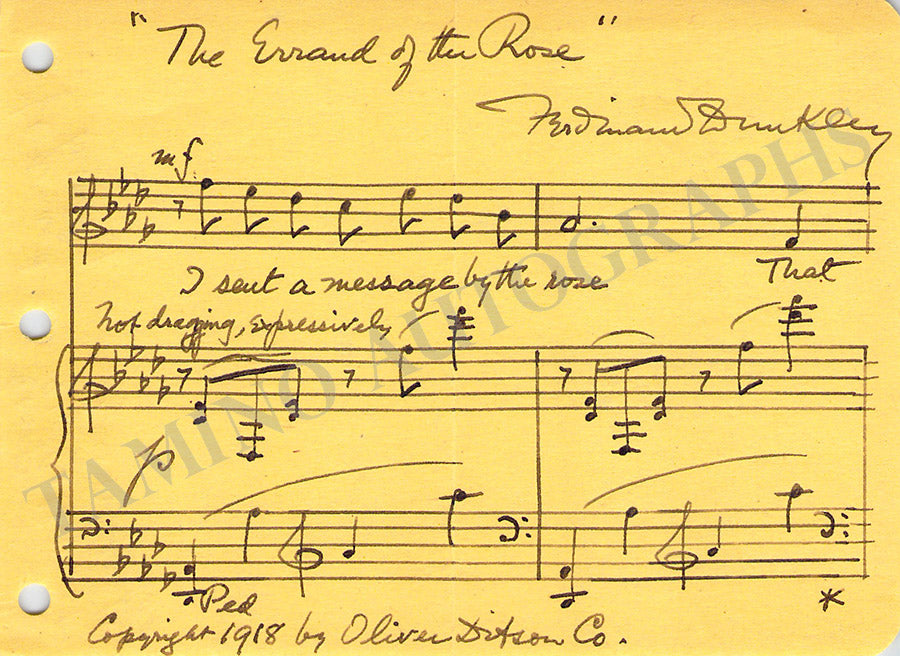 "The Errand of the Rose"
Ferdinand Dunkley
mf
I sent a message by the rose
That
Not dragging, expressively
p
Ped
*
Copyright 1918 by Oliver Ditson Co.
TAMINO AUTOGRAPHS